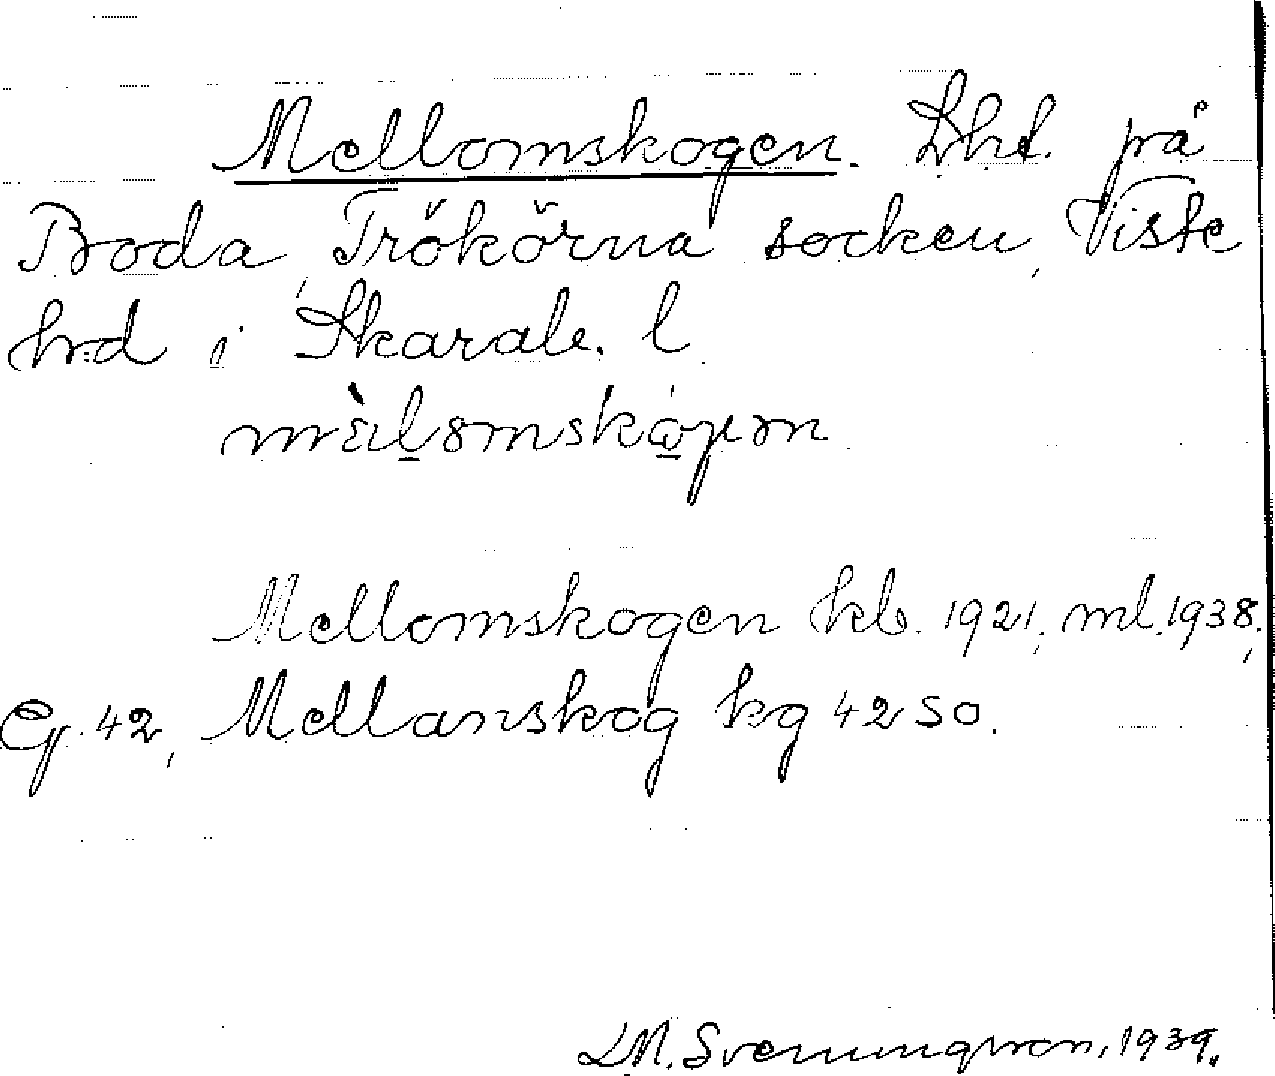 Mellomskogen. Lht. på
Boda, Trökörna socken, Viste
hd i Skarab. l.
mèlomskógen
Mellomskogen kb. 1921, ml. 1938,
Gj. 42, Mellanskog kg 42 SO.
LM. Svenungsson, 1939.